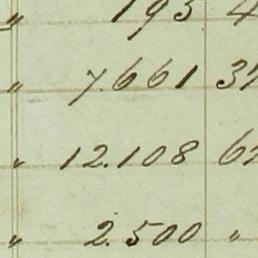 " 193 4
" 7.661 37
" 12.108 62
" 2.500 "